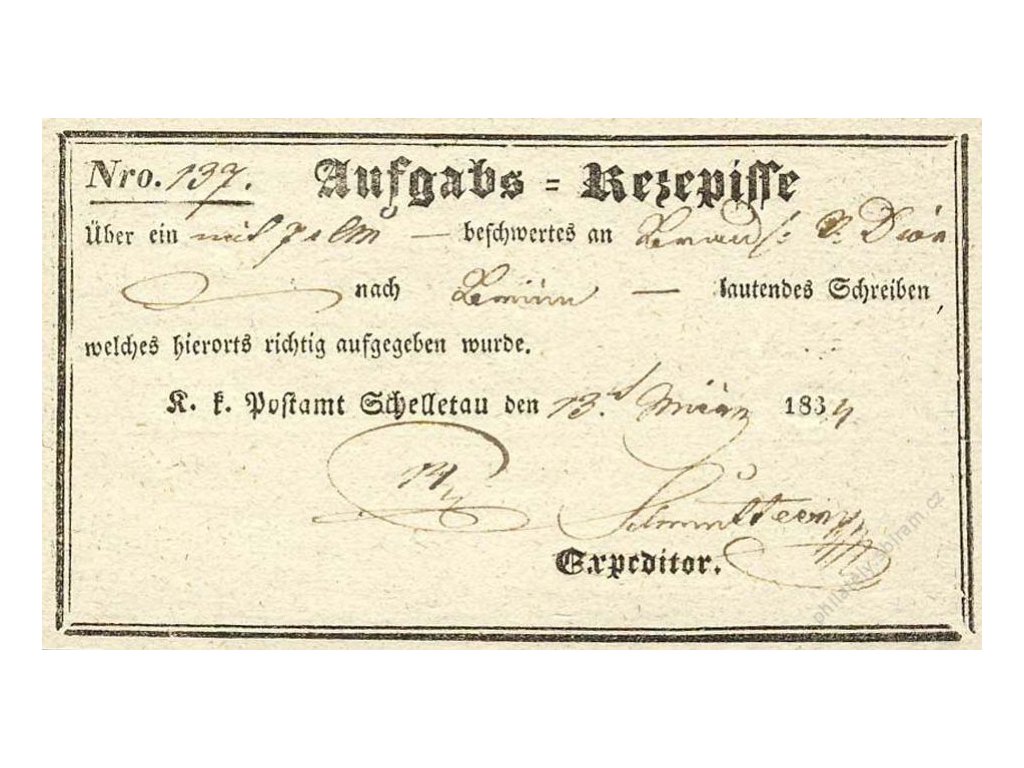 Nro. 137. Aufgabs = Rezepisse
Über ein mit — beschwertes an
nach Brünn — lautendes Schreiben,
welches hierorts richtig aufgegeben wurde.
K. k. Postamt Schelletau den 13. März 1834
14
Expeditor.
philately-pribram.cz